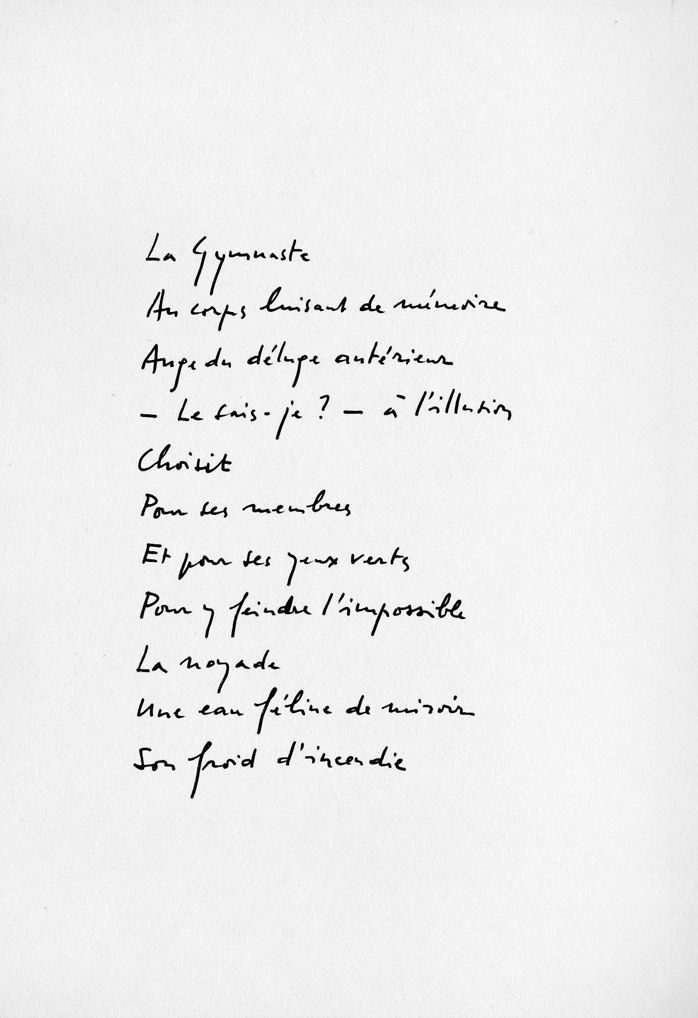 La Gymnaste
Au corps luisant de mémoire
Ange du déluge antérieur
— Le sais-je ? — à l'illusion
Choisit
Pour ses membres
Et pour ses yeux verts
Pour y feindre l'impossible
La noyade
Une eau féline de miroir
Son froid d'incendie